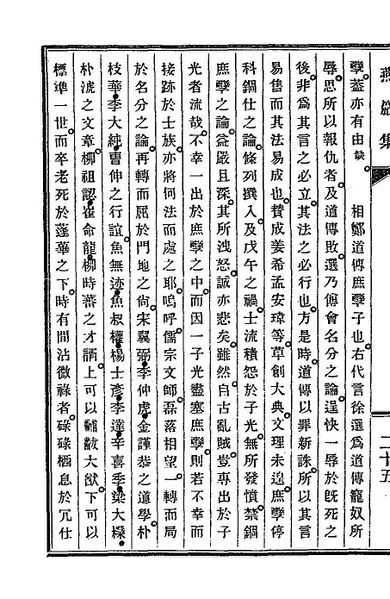 燕巖集 二十五
孼蓋亦有由缺 相鄭道傳庶孼子也右代言徐選爲道傳寵奴所
辱思所以報仇者及道傳敗選乃傅會名分之論逞快一辱於旣死之
後非爲其言之必立其法之必行也方是時道傳以罪新誅所以其言
易售而其法易成也贊成姜希孟安瑋等草創大典文理未遑庶孼停
科錮仕之論條列撰入及戊午之禍士流積怨於子光無所發憤禁錮
庶孼之論益嚴且深其所洩怒誠亦悲矣雖然自古亂賊豈專出於子
光者流哉不幸一出於庶孼之中而因一子光盡塞庶孼則若不幸而
接跡於士族亦將何法而處之耶嗚呼儒宗文師磊落相望一轉而局
於名分之論再轉而屈於門地之尙宋翼弼李仲虎金謹恭之道學朴
枝華李大純曺伸之行誼魚無迹魚叔權楊士彥李達辛喜季梁大樸
朴淲之文章柳祖訒崔命龍柳時蕃之才諝上可以黼黻大猷下可以
標準一世而卒老死於蓬蓽之下時有間沾微祿者碌碌栖息於冗仕